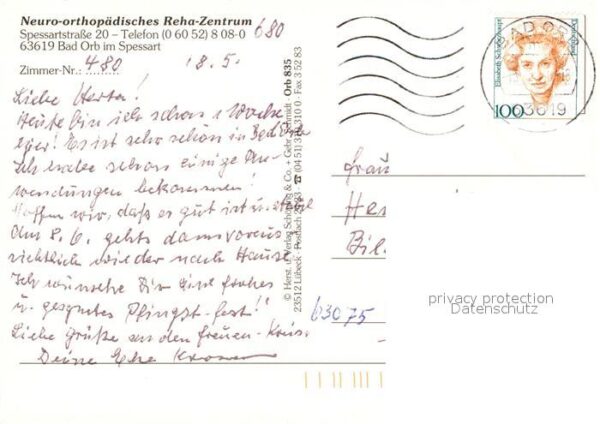 Neuro-orthopädisches Reha-Zentrum
Spessartstraße 20 – Telefon (0 60 52) 8 08-0 680
63619 Bad Orb im Spessart
Zimmer-Nr.: 480 18.5.
Liebe Herta!
Heute bin ich schon 1 Woche
hier! Es ist sehr schön in Bad Orb
Ich habe schon einige An-
wendungen bekommen!
Hoffen wir, daß es gut ist u.
Am 8.6. gehts dann voraus
sichtlich wieder nach Hause
Ich wünsche Dir ein frohes
u. gesegnetes Pfingst-fest!
Liebe Grüße an den Frauen-Kreis.
Deine
© Herst. u. Verlag Schöning & Co. + Gebr. Schmidt · Orb 835
23512 Lübeck · Postfach
Elisabeth Schwarzhaupt
100
BAD ORB
63619
Frau
Her
Bil
63075
privacy protection
Datenschutz